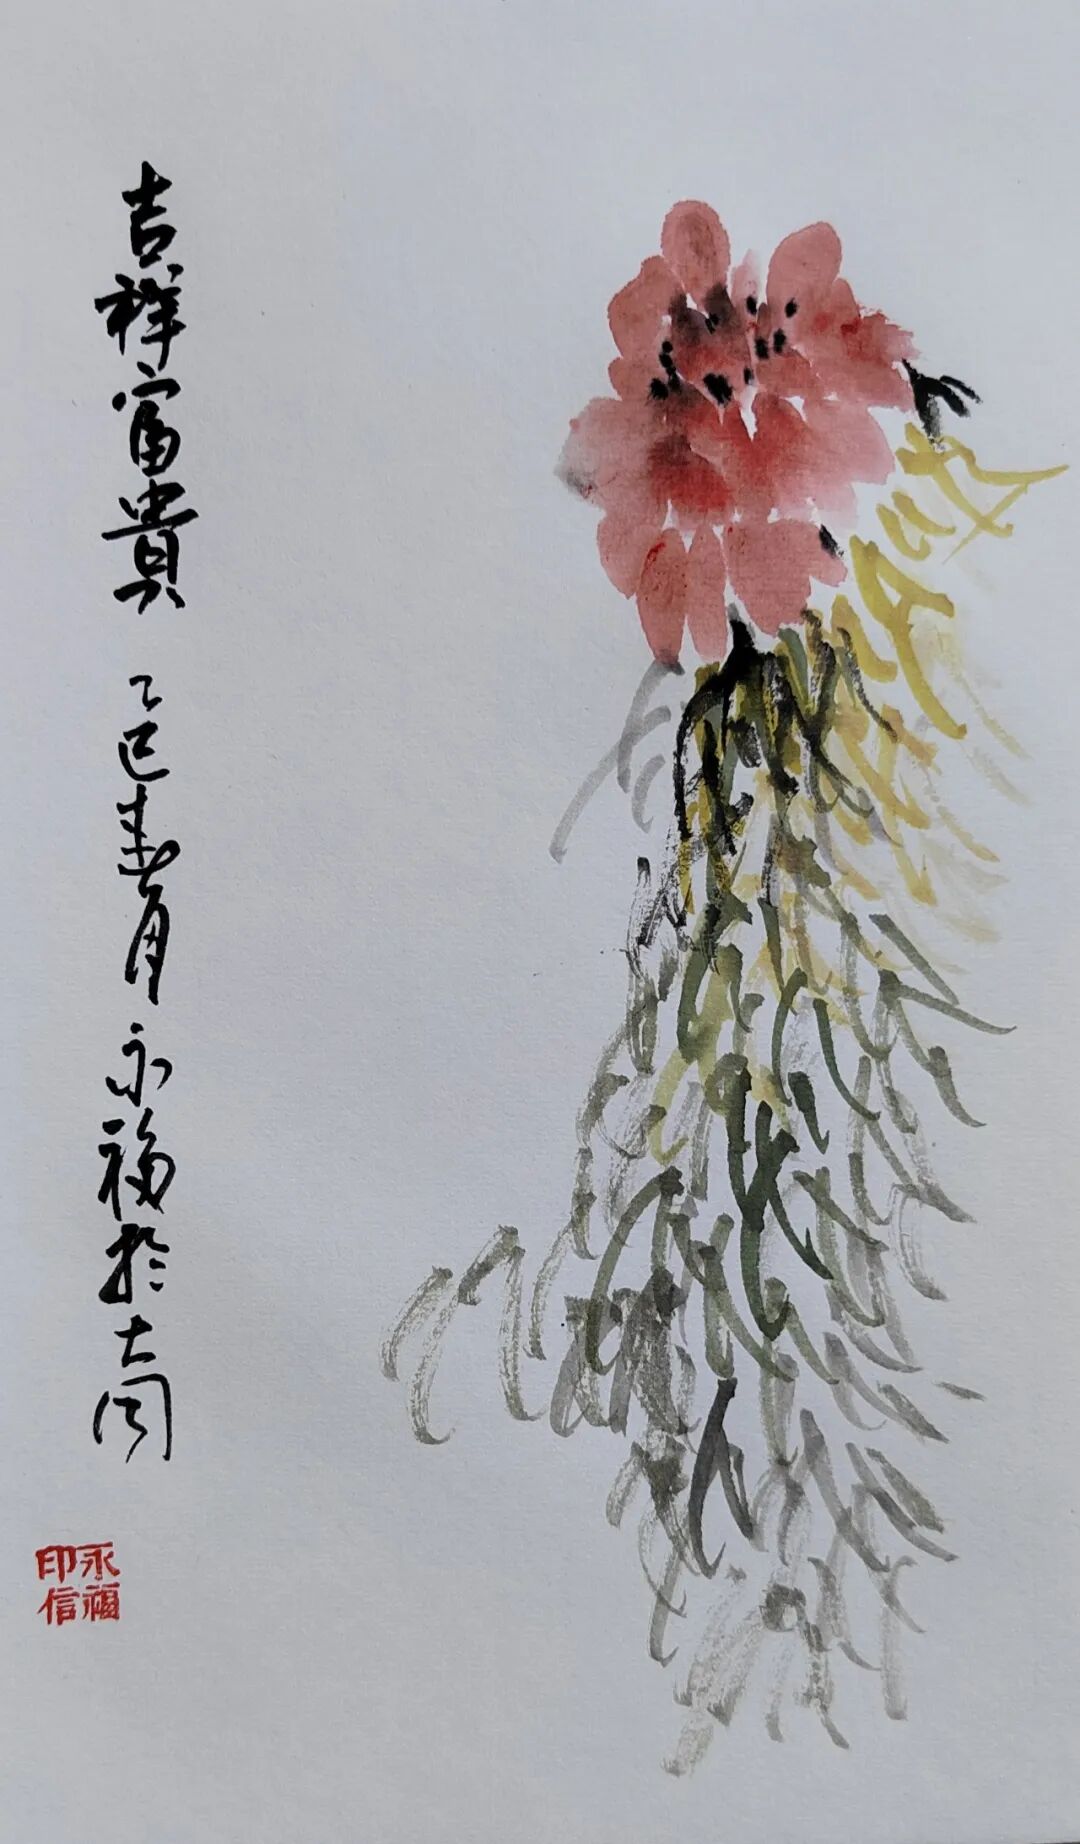 吉祥富貴 乙巳春月永福於大同
永福
印信